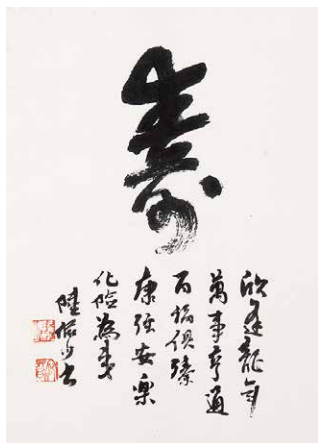 壽
欣逢龍年
萬事亨通
百福俱臻
康强安樂
化險為夷
陸儼少書